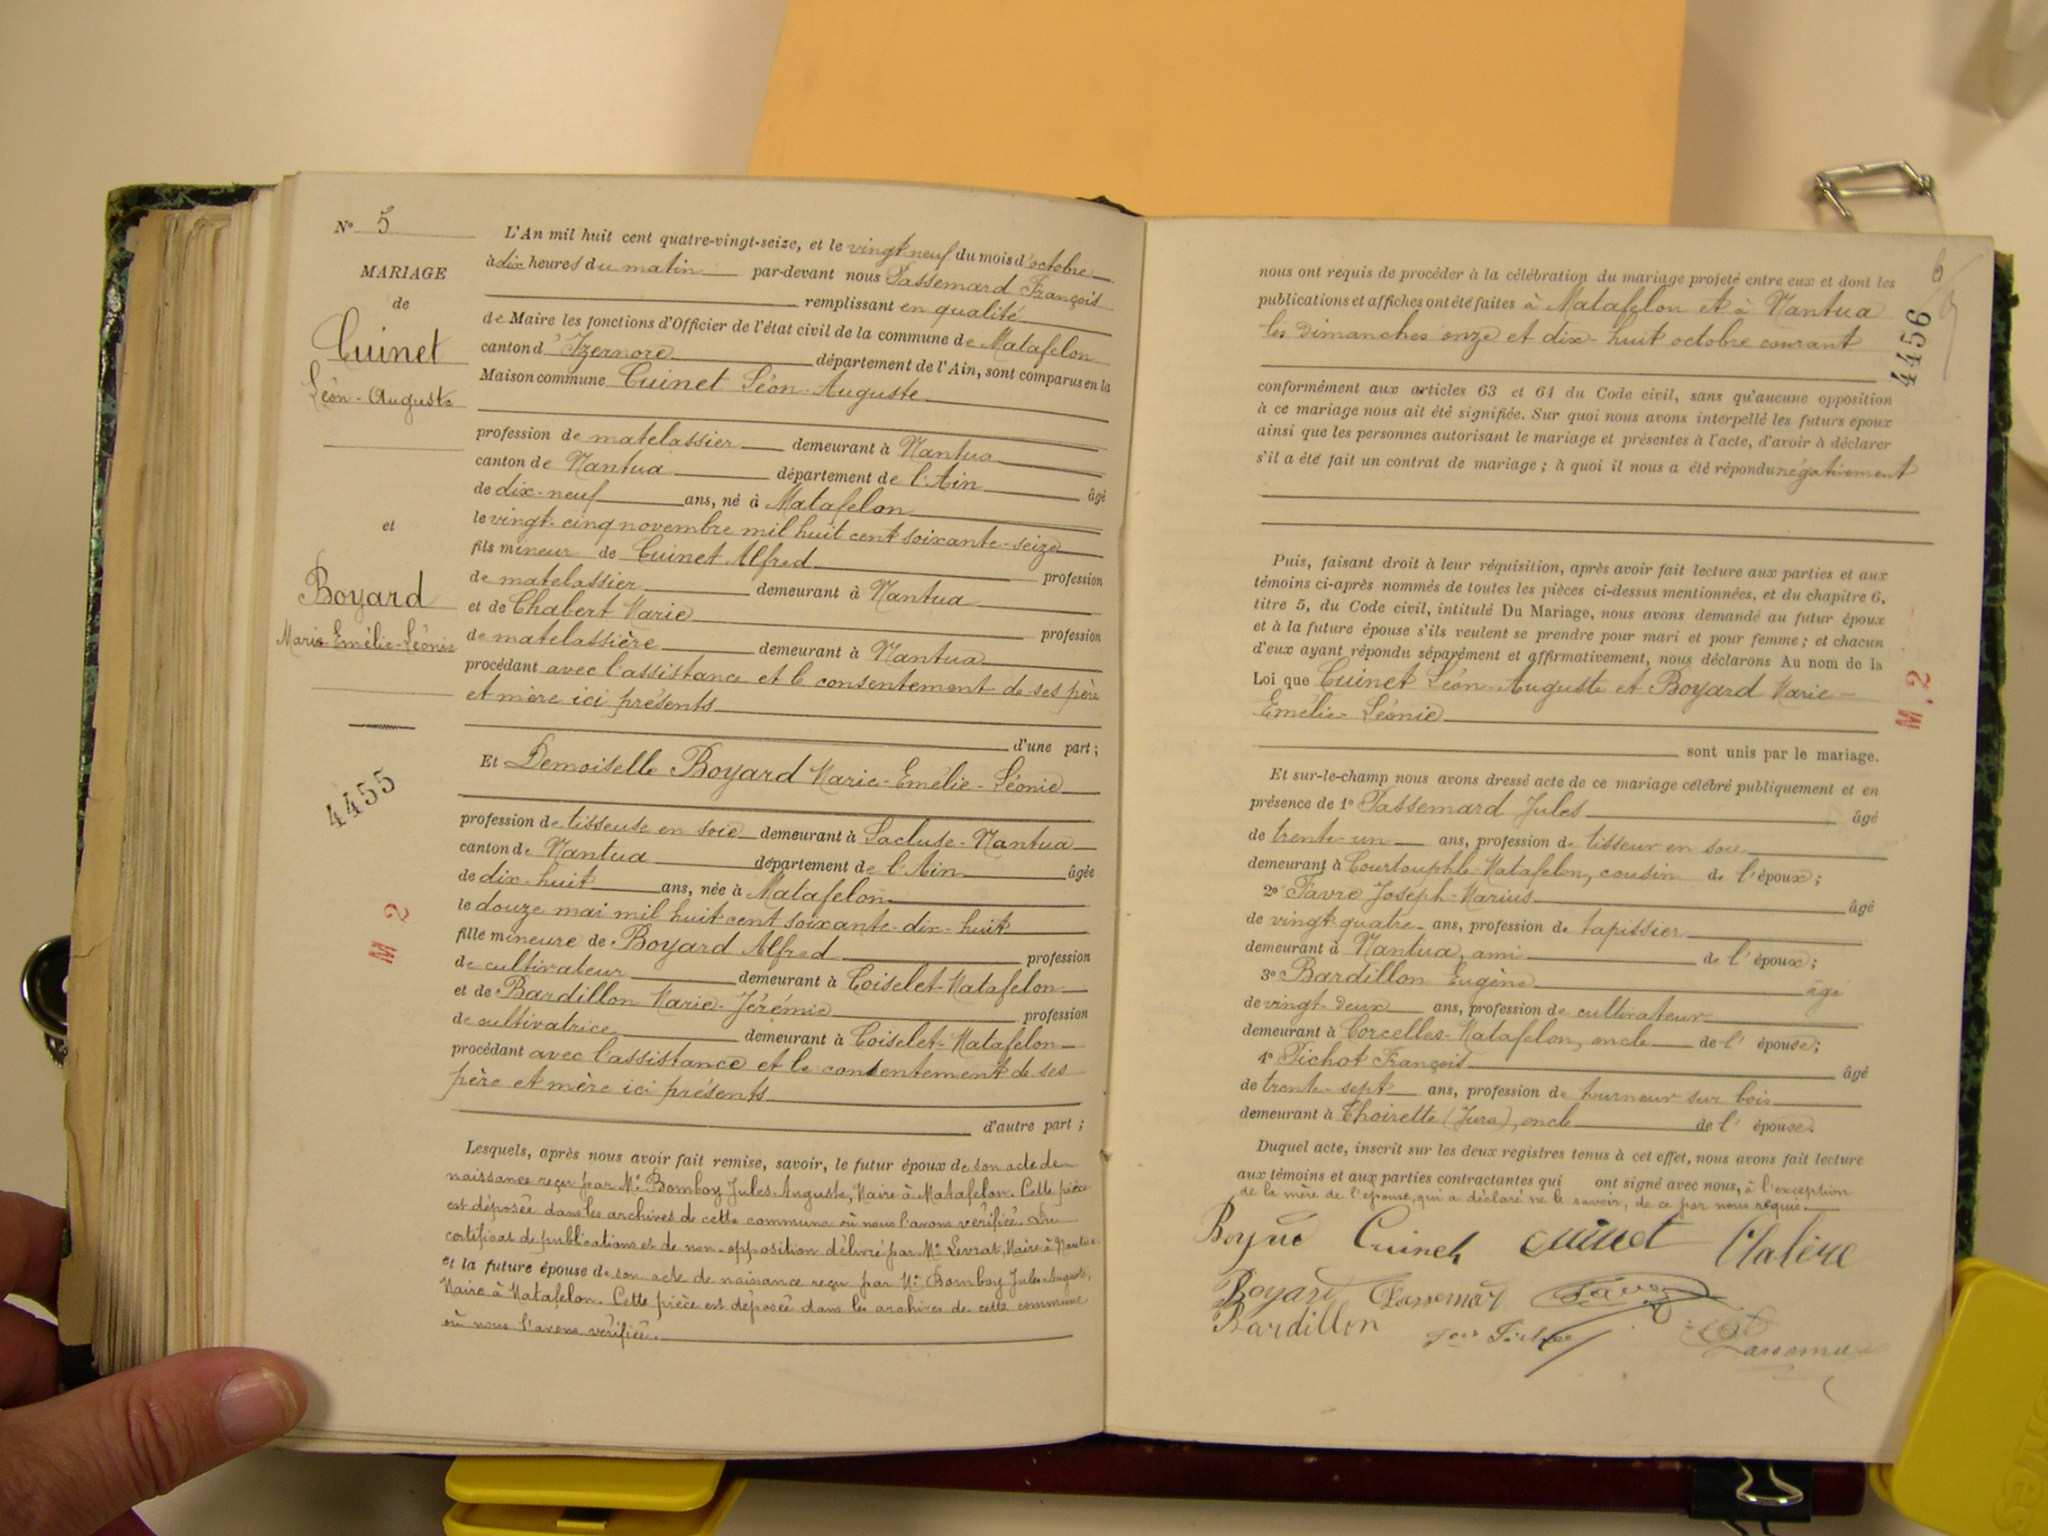 N° 5
MARIAGE
de
Cuinet
Léon-Auguste
et
Boyard
Marie-Emélie-Léonie
4455
M 2
L'An mil huit cent quatre-vingt-seize, et le vingt neuf du mois d'octobre
à dix heures du matin par-devant nous Passemard François
remplissant en qualité
de Maire les fonctions d'Officier de l'état civil de la commune de Matafelon
canton d'Izernore département de l'Ain, sont comparus en la
Maison commune Cuinet Léon-Auguste
profession de matelassier demeurant à Nantua
canton de Nantua département de l'Ain âgé
de dix-neuf ans, né à Matafelon
le vingt-cinq novembre mil huit cent soixante-seize
fils mineur de Cuinet Alfred profession
de matelassier demeurant à Nantua
et de Chabert Marie profession
de matelassière demeurant à Nantua
procédant avec l'assistance et le consentement de ses père
et mère ici présents
d'une part;
Et Demoiselle Boyard Marie-Emélie-Léonie
profession de tisseuse en soie demeurant à Lacluse-Nantua
canton de Nantua département de l'Ain âgée
de dix-huit ans, née à Matafelon
le douze mai mil huit cent soixante-dix-huit
fille mineure de Boyard Alfred profession
de cultivateur demeurant à Coiselet-Matafelon
et de Bardillon Marie-Jérémie profession
de cultivatrice demeurant à Coiselet-Matafelon
procédant avec l'assistance et le consentement de ses
père et mère ici présents
d'autre part;
Lesquels, après nous avoir fait remise, savoir, le futur époux de son acte de
naissance reçu par Mr Bomboy Jules-Auguste, Maire à Matafelon. Cette pièce
est déposée dans les archives de cette commune où nous l'avons vérifiée. Du
certificat de publications et de non-opposition délivré par Mr Levrat, Maire à Nantua
et la future épouse de son acte de naissance reçu par Mr Bomboy Jules-Auguste,
Maire à Matafelon. Cette pièce est déposée dans les archives de cette commune
où nous l'avons vérifiée.
nous ont requis de procéder à la célébration du mariage projeté entre eux et dont les
publications et affiches ont été faites à Matafelon et à Nantua
les Dimanches onze et dix-huit octobre courant
4456
conformément aux articles 63 et 64 du Code civil, sans qu'aucune opposition
à ce mariage nous ait été signifiée. Sur quoi nous avons interpellé les futurs époux
ainsi que les personnes autorisant le mariage et présentes à l'acte, d'avoir à déclarer
s'il a été fait un contrat de mariage; à quoi il nous a été répondu négativement
Puis, faisant droit à leur réquisition, après avoir fait lecture aux parties et aux
témoins ci-après nommés de toutes les pièces ci-dessus mentionnées, et du chapitre 6,
titre 5, du Code civil, intitulé Du Mariage, nous avons demandé au futur époux
et à la future épouse s'ils veulent se prendre pour mari et pour femme; et chacun
d'eux ayant répondu séparément et affirmativement, nous déclarons Au nom de la
Loi que Cuinet Léon-Auguste et Boyard Marie-
Emélie-Léonie
M. 2
sont unis par le mariage.
Et sur-le-champ nous avons dressé acte de ce mariage célébré publiquement et en
présence de 1° Passemard Jules âgé
de trente-un ans, profession de tisseur en soie
demeurant à Courtouphle-Matafelon, cousin de l'époux;
2° Favre Joseph-Marius âgé
de vingt quatre ans, profession de tapissier
demeurant à Nantua, ami de l'époux;
3° Bardillon Eugène âgé
de vingt-deux ans, profession de cultivateur
demeurant à Corcelles-Matafelon, oncle de l'épouse;
4° Pichot François âgé
de trente-sept ans, profession de tourneur sur bois
demeurant à Thoirette (Jura), oncle de l'épouse.
Duquel acte, inscrit sur les deux registres tenus à cet effet, nous avons fait lecture
aux témoins et aux parties contractantes qui ont signé avec nous, à l'exception
de la mère de l'épouse, qui a déclaré ne le savoir, de ce par nous requise.
Cuinet cuinet
Boyard Passemard Favre
Bardillon